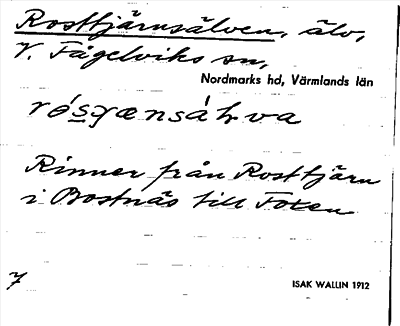 Rosttjärnsälven, älv,
V. Fågelviks sn,
Nordmarks hd, Värmlands län
Rinner från Rosttjärn
i Bostnäs till Foxen
7
ISAK WALLIN 1912